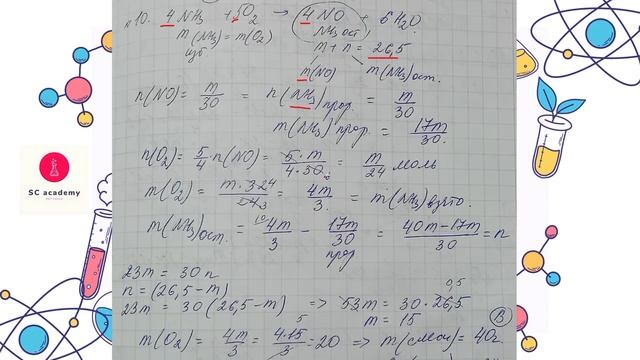 10. 4NH₃ + 5O₂ → 4NO + 6H₂O
m(NH₃) = m(O₂) NH₃ ост
изб m + n = 26,5
m(NO) m(NH₃)ост.
n(NO) = m/30 = n(NH₃)прор. = m/30
m(NH₃)прор. = 17m/30.
n(O₂) = 5/4 · n(NO) = 5·m/4·30 = m/24 моль
m(O₂) = m·32/24 = 4m/3. = m(NH₃)взято.
SC academy
m(NH₃)ост. = 10 4m/3 - 17m/30 = 40m-17m/30 = n
23m = 30n
n = (26,5-m) 0,5
23m = 30(26,5-m) => 53m = 30·26,5
m = 15
m(O₂) = 4m/3 = 4·15/3 = 20 => m(смеси) = 40г B